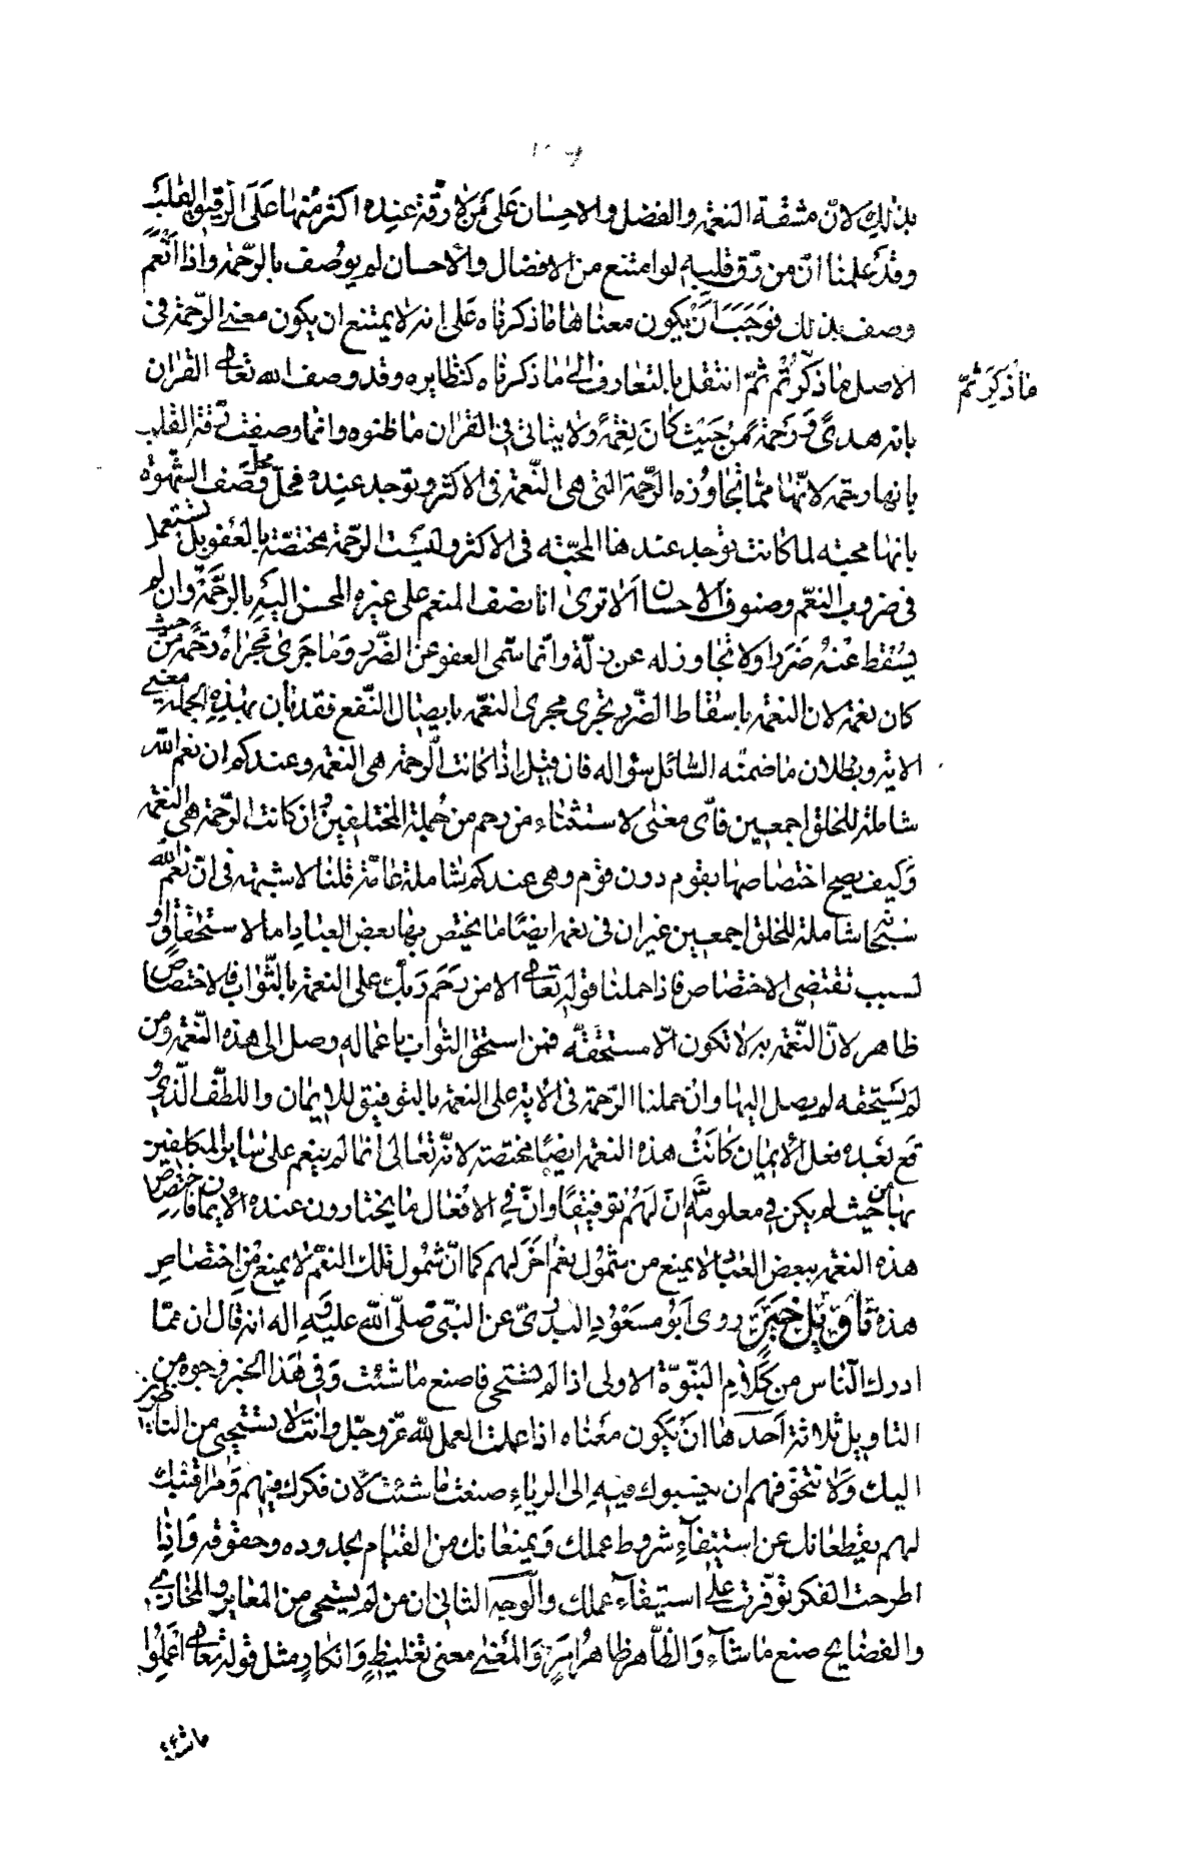 بذلك لان مشقة النعمة والفضل والاحسان على من لا رقة عنده اكثر منها على الرقيق القلب
وقد علمنا ان من رق قلبه لو امتنع من الافضال والاحسان لم يوصف بالرحمة واذا انعم
وصف بذلك فوجب ان يكون معناها ما ذكرناه على انه لا يمتنع ان يكون معنى الرحمة فى
الاصل ما ذكرتم ثم انتقل بالتعارف الى ما ذكرناه كنظايره وقد وصف الله تعالى القران
ما ذكر ثم
بانه هدى ورحمة من حيث كان نعمة ولا يتاتى فى القران ما ظنوه وانما وصفت رقة القلب
بانها رحمة لانها مما تجاوره الرحمة التى هى النعمة فى الاكثر وتوجد عنده فحل محل وصف الشهوة
بانها محبة لما كانت توجد عندها المحبة فى الاكثر وليست الرحمة مختصة بالعفو بل تستعمل
فى ضروب النعم وصنوف الاحسان الا ترى انا نصف المنعم على غيره المحسن اليه بالرحمة وان لم
يسقط عنه ضررا ولا تجاوز له عن زلة وانما سمى العفو عن الضرر وما جرى مجراه رحمة من حيث
كان نعمة لان النعمة باسقاط الضرر تجرى مجرى النعمة بايصال النفع فقد بان بهذه الجملة معنى
الاية وبطلان ما ضمنه السائل سؤاله فان قيل اذا كانت الرحمة هى النعمة وعندكم ان نعم الله
شاملة للخلق اجمعين فاى معنى لاستثناء من رحم من جملة المختلفين وان كانت الرحمة هى النعمة
وكيف يصح اختصاصها بقوم دون قوم وهى عندكم شاملة عامة قلنا لا شبهة فى ان نعم الله
سبحانه شاملة للخلق اجمعين غير ان فى نعمه ايضا ما يختص بها بعض العباد اما لاستحقاق او
لسبب تقتضى الاختصاص فاذا حملنا قوله تعالى الا من رحم ربك على النعمة بالثواب فالاختصاص
ظاهر لان النعمة به لا تكون الا مستحقه فمن استحق الثواب باعماله وصل الى هذه النعمة ومن
لم يستحقه لم يصل اليها وان حملنا الرحمة فى الاية على النعمة بالتوفيق للايمان واللطف الذى و
قع بعده فعل الايمان كانت هذه النعمة ايضا مختصة لانه تعالى انما لم ينعم على سائر المكلفين
بها من حيث لم يكن فى معلومه ان لهم توفيقا وان فى الافعال ما يختارون عنده الايمان فاختصاص
هذه النعمة ببعض العباد لا يمنع من شمول نعم اخر لهم كما ان شمول تلك النعم لا يمنع من اختصاص
هذه تاويل خبر روى ابو مسعود البدرى عن النبى صلى الله عليه واله انه قال ان مما
ادرك الناس من كلام النبوة الاولى اذا لم تستحى فاصنع ما شئت وفى هذا الخبر وجوه من
التاويل ثلاثة احدها ان يكون معناه اذا عملت العمل لله عز وجل وانت لا تستحيى من الناس
اليك ولا تتخوفهم ان ينسبوك فيه الى الرياء صنعت ما شئت لان فكرك فيهم ومراقبتك
لهم يقطعانك عن استيفاء شروط عملك ويمنعانك من القيام بحدوده وحقوقه واذا
اطرحت الفكر توفرت على استيفاء عملك والوجه الثانى ان من لم يستحى من المعايب والمخازى
والفضايح صنع ما شاء والظاهر ظاهر امر والمعنى معنى تغليظ وانكار مثل قوله تعالى اعملوا
ما شئتم